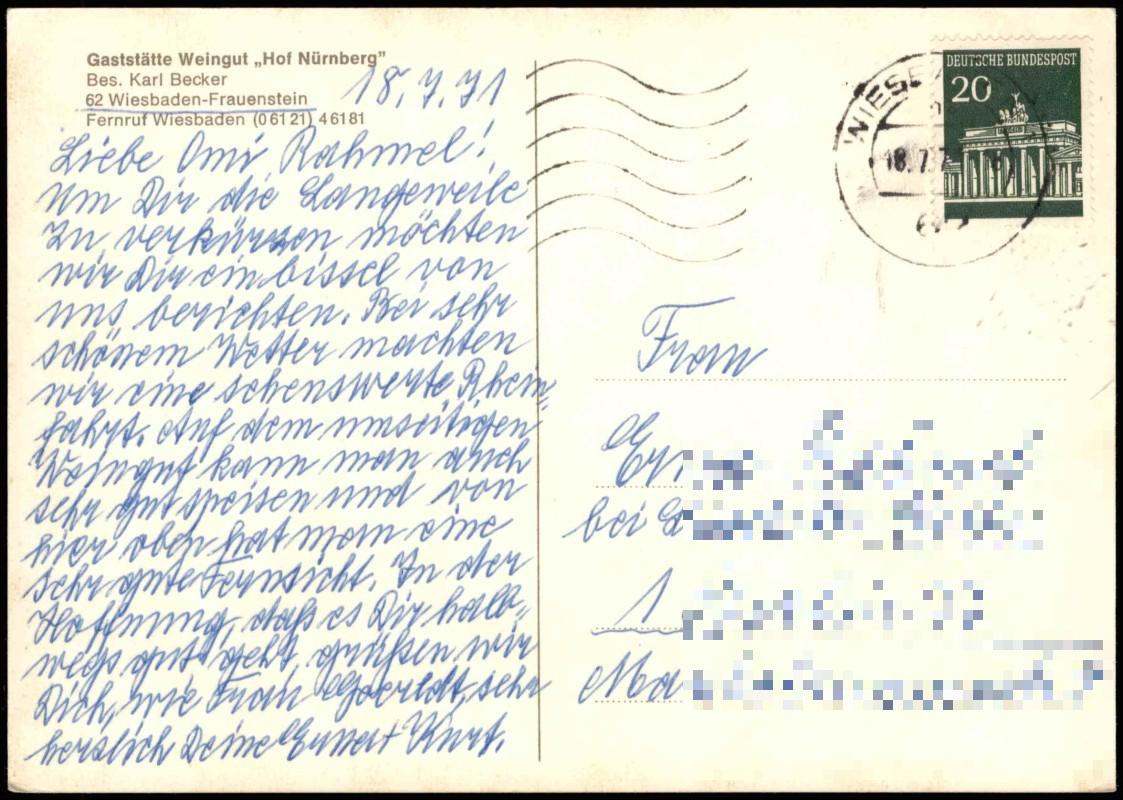 Gaststätte Weingut „Hof Nürnberg"
Bes. Karl Becker
62 Wiesbaden-Frauenstein
Fernruf Wiesbaden (0 61 21) 4 61 81
18.7.71
Liebe Omi Rahmel!
Um Dir die Langeweile
zu verkürzen möchten
wir Dir ein bissel von
uns berichten. Bei sehr
schönem Wetter machten
wir eine sehenswerte Rhein-
fahrt. Auf dem umseitigen
Weingut kann man auch
sehr gut speisen und von
hier oben hat man eine
sehr gute Fernsicht. In der
Hoffnung, daß es Dir halb-
wegs gut geht, grüßen wir
Dich, wie Frau sehr
herzlich Deine Kurt.
DEUTSCHE BUNDESPOST
20
WIESB
18.7.7
Frau
bei
1
Ma